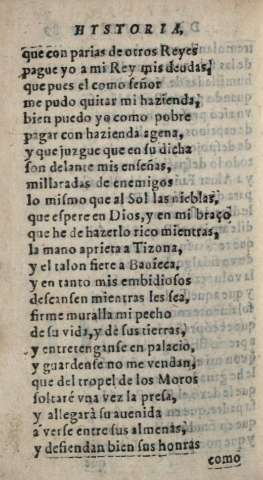 HYSTORIA,
que con parias de otros Reyes
pague yo a mi Rey mis deudas,
que pues el como señor
me pudo quitar mi hazienda,
bien puedo yo como pobre
pagar con hazienda agena,
y que juzgue que en su dicha
son delante mis enseñas,
millaradas de enemigos
lo mismo que al Sol las nieblas,
que espere en Dios, y en mi braço
que he de hazerlo rico mientras,
la mano aprieta a Tizona,
y el talon fiere a Bauieca,
y en tanto mis embidiosos
descansen mientras les sea,
firme muralla mi pecho
de su vida, y de sus tierras,
y entretenganse en palacio,
y guardense no me vendan,
que del tropel de los Moros
soltaré vna vez la presa,
y allegarà su auenida
à verse entre sus almenas,
y defiendan bien sus honras
como